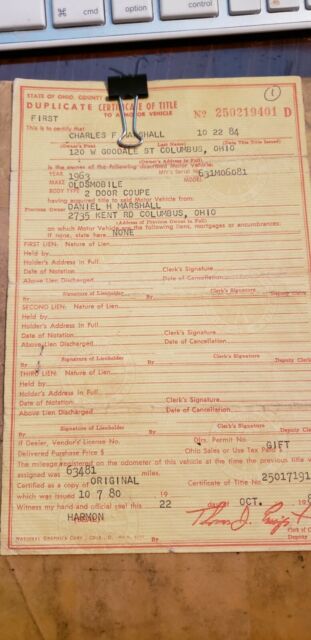 ⌘
cmd
option
STATE OF OHIO, COUNTY
1
DUPLICATE CERTIFICATE OF TITLE
FIRST
TO A MOTOR VEHICLE
No 250219401 D
This is to certify that
CHARLES F MARSHALL 10 22 84
(Owner's First) Last Name) (Date This Title Issued)
120 W GOODALE ST COLUMBUS, OHIO
(Owner's Address in Full)
is the owner of the following described Motor Vehicle:
YEAR 1963 MFV'S Serial No. 631M06081
MAKE OLDSMOBILE MODEL
BODY TYPE 2 DOOR COUPE
having acquired title to said Motor Vehicle from:
DANIEL H MARSHALL
Previous Owner 2735 KENT RD COLUMBUS, OHIO
(Address of Previous Owner in Full)
on which Motor Vehicle are the following liens, mortgages or encumbrances:
If none, state here NONE
FIRST LIEN: Nature of Lien
Held by
Holder's Address in Full
Date of Notation Clerk's Signature
Above Lien Discharged Date of Cancellation
Signature of Lienholder Clerk's Signature
By By Deputy Clerk
SECOND LIEN: Nature of Lien
Held by
Holder's Address in Full
Date of Notation Clerk's Signature
Above Lien Discharged Date of Cancellation
Signature of Lienholder Clerk's Signature
By By Deputy Cler
THIRD LIEN: Nature of Lien
Held by
Holder's Address in Full
Date of Notation Clerk's Signature
Above Lien Discharged Date of Cancellation
Signature of Lienholder Clerk's Signature
By By Deputy Cl
If Dealer, Vendor's License No. Dlrs. Permit No.
Delivered Purchase Price $ Ohio Sales or Use Tax Paid $ GIFT
The mileage registered on the odometer of this vehicle at the time the previous title w
assigned was 63481 miles.
Certified as a copy of ORIGINAL Certificate of Title No. 25017191
which was issued 10 7 80 19
Witness my hand and official seal this 22 day of OCT. 19 8
HARMON
(SEAL)
Clerk of C
By Deputy